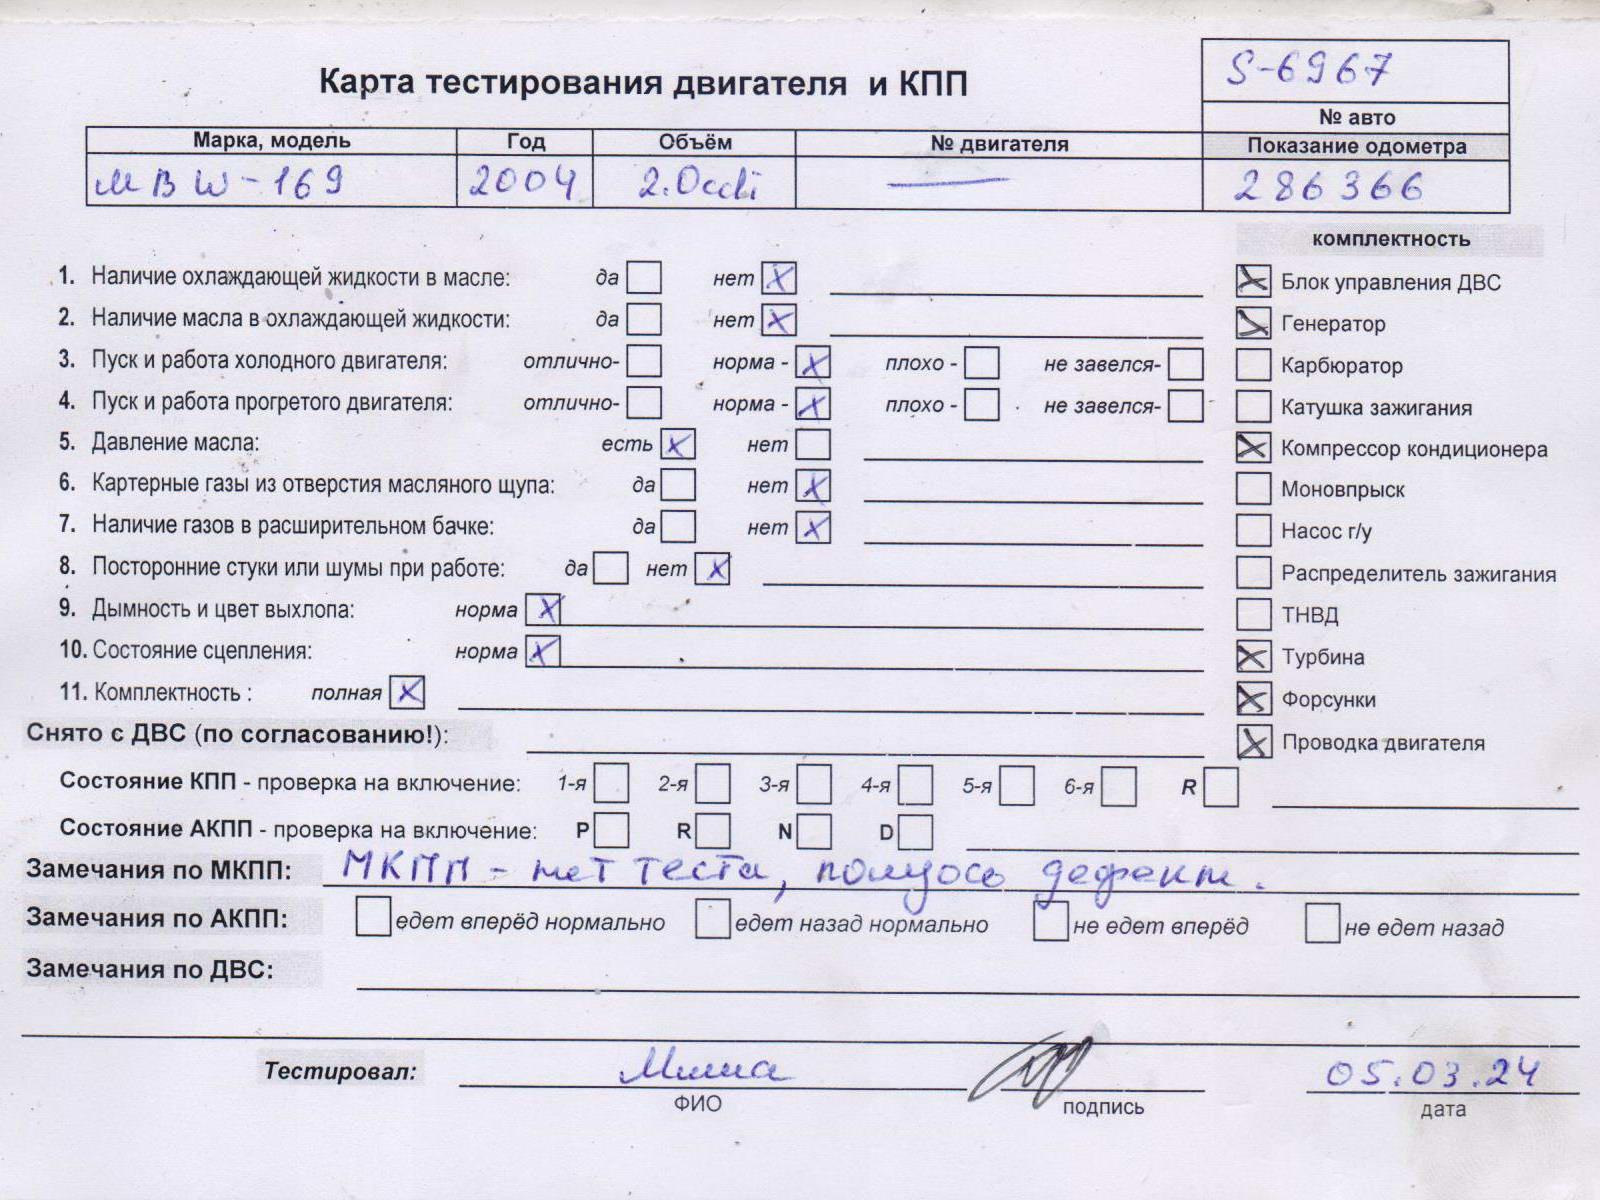 S-6967
Карта тестирования двигателя и КПП
№ авто
Марка, модель Год Объём № двигателя Показание одометра
MB W-169 2004 2.0cdi — 286366
комплектность
1. Наличие охлаждающей жидкости в масле: да нет X
Блок управления ДВС X
2. Наличие масла в охлаждающей жидкости: да нет X
Генератор X
3. Пуск и работа холодного двигателя: отлично- норма - X плохо - не завелся-
Карбюратор
4. Пуск и работа прогретого двигателя: отлично- норма - X плохо - не завелся-
Катушка зажигания
5. Давление масла: есть X нет
Компрессор кондиционера X
6. Картерные газы из отверстия масляного щупа: да нет X
Моновпрыск
7. Наличие газов в расширительном бачке: да нет X
Насос г/у
8. Посторонние стуки или шумы при работе: да нет X
Распределитель зажигания
9. Дымность и цвет выхлопа: норма X
ТНВД
10. Состояние сцепления: норма X
Турбина X
11. Комплектность : полная X
Форсунки X
Снято с ДВС (по согласованию!):
Проводка двигателя X
Состояние КПП - проверка на включение: 1-я 2-я 3-я 4-я 5-я 6-я R
Состояние АКПП - проверка на включение: P R N D
Замечания по МКПП: МКПП - нет теста, полуось дефект.
Замечания по АКПП: едет вперёд нормально едет назад нормально не едет вперёд не едет назад
Замечания по ДВС:
Тестировал: Миша 05.03.24
ФИО подпись дата